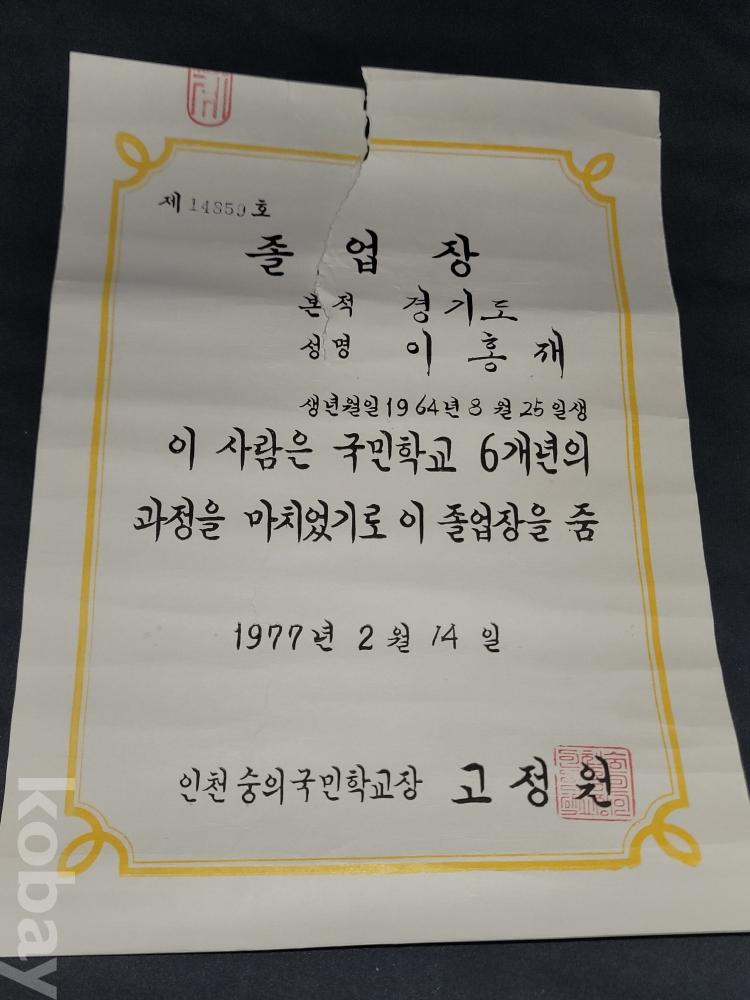 제 14859 호
졸 업 장
본적 경기도
성명 이 홍 재
생년월일 1964년 8월 25일생
이 사람은 국민학교 6개년의
과정을 마치었기로 이 졸업장을 줌
1977년 2월 14일
인천숭의국민학교장 고정원
kobay